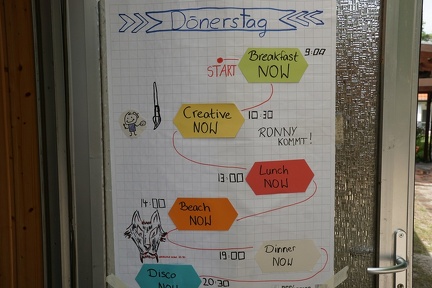 Dönerstag
Breakfast
NOW
9:00
START
Creative
NOW
10:30
RONNY
KOMMT!
Lunch
NOW
13:00
14:00
Beach
NOW
Dinner
NOW
19:00
Disco
NOW
20:30